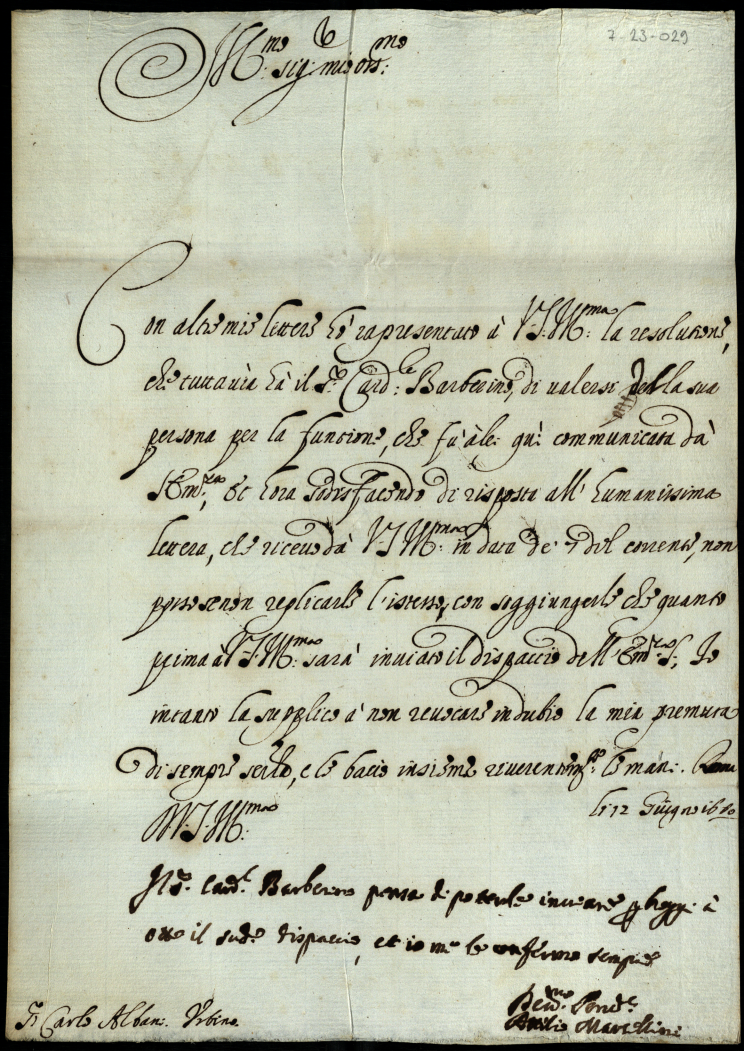 7-23-029
Ill:mo sig:re mio oss:mo
Con altre mie lettere hò rapresentato à V.S. Ill:ma la resolutione,
che tuttavia hà il S.r Card:le Barberino, di valersi della sua
persona per la funtione, che fù à lei quì communicata dà
S. Em:za, et hora sodisfacendo di risposta all' humanissima
lettera, che ricevo dà V.S. Ill:ma in data de' 7 del corrente, non
posso se non replicarle l'istesso, con soggiungerle che quanto
prima à V.S. Ill:ma sarà inviato il dispaccio dell' Em:za S.; Io
intanto la supplico à non revocare in dubio la mia premura
di sempre servirlo, e le bacio insieme riverentem:te le mani. Roma
li 12 Giugno 16
D.V.S. Ill:ma
Il S.r Card.l Barberino pensa di poterle inviare p hoggi à
otto il sud.o dispaccio, et io me le confermo sempre
Dev:mo
Attilio Marcellini
S.r Carlo Albani. Urbino.